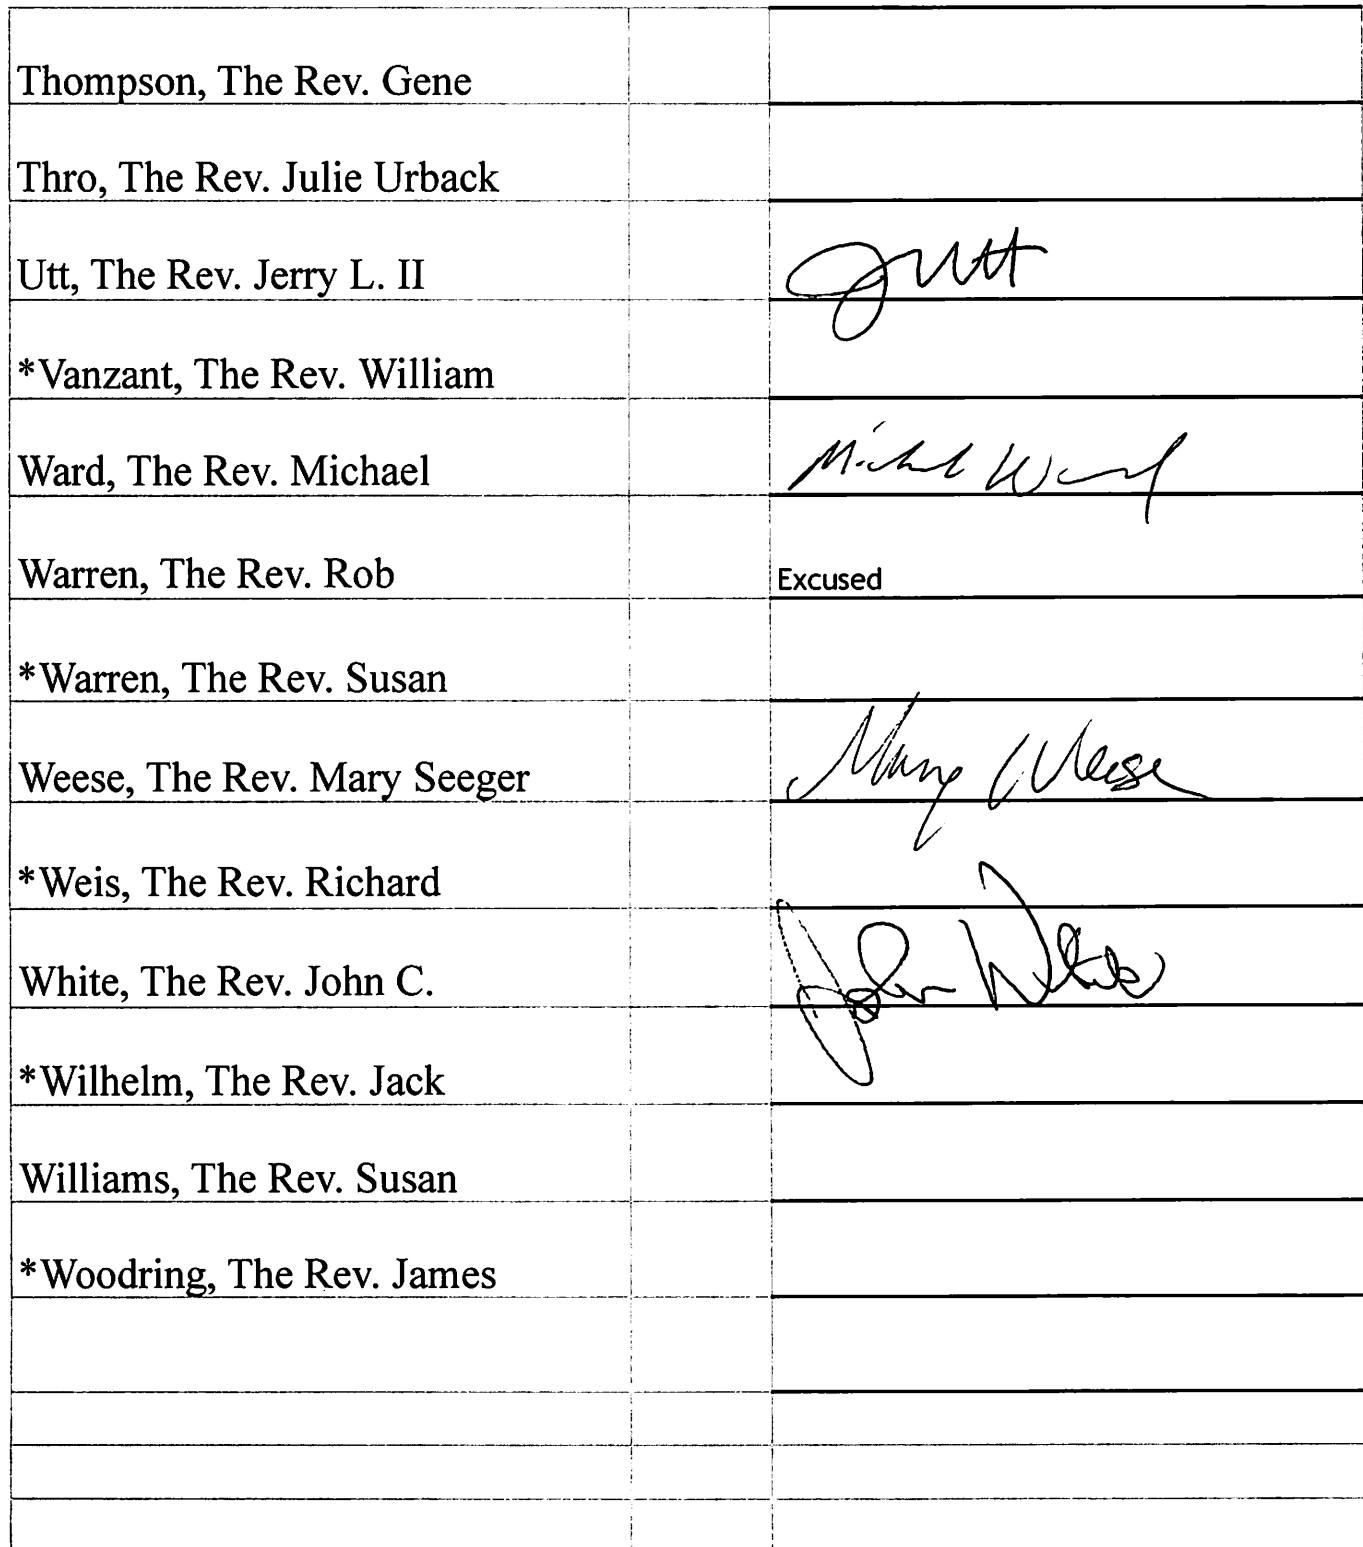 Thompson, The Rev. Gene
Thro, The Rev. Julie Urback
Utt, The Rev. Jerry L. II JUtt
*Vanzant, The Rev. William
Ward, The Rev. Michael Michael Ward
Warren, The Rev. Rob Excused
*Warren, The Rev. Susan
Weese, The Rev. Mary Seeger Mary Weese
*Weis, The Rev. Richard
White, The Rev. John C. John White
*Wilhelm, The Rev. Jack
Williams, The Rev. Susan
*Woodring, The Rev. James